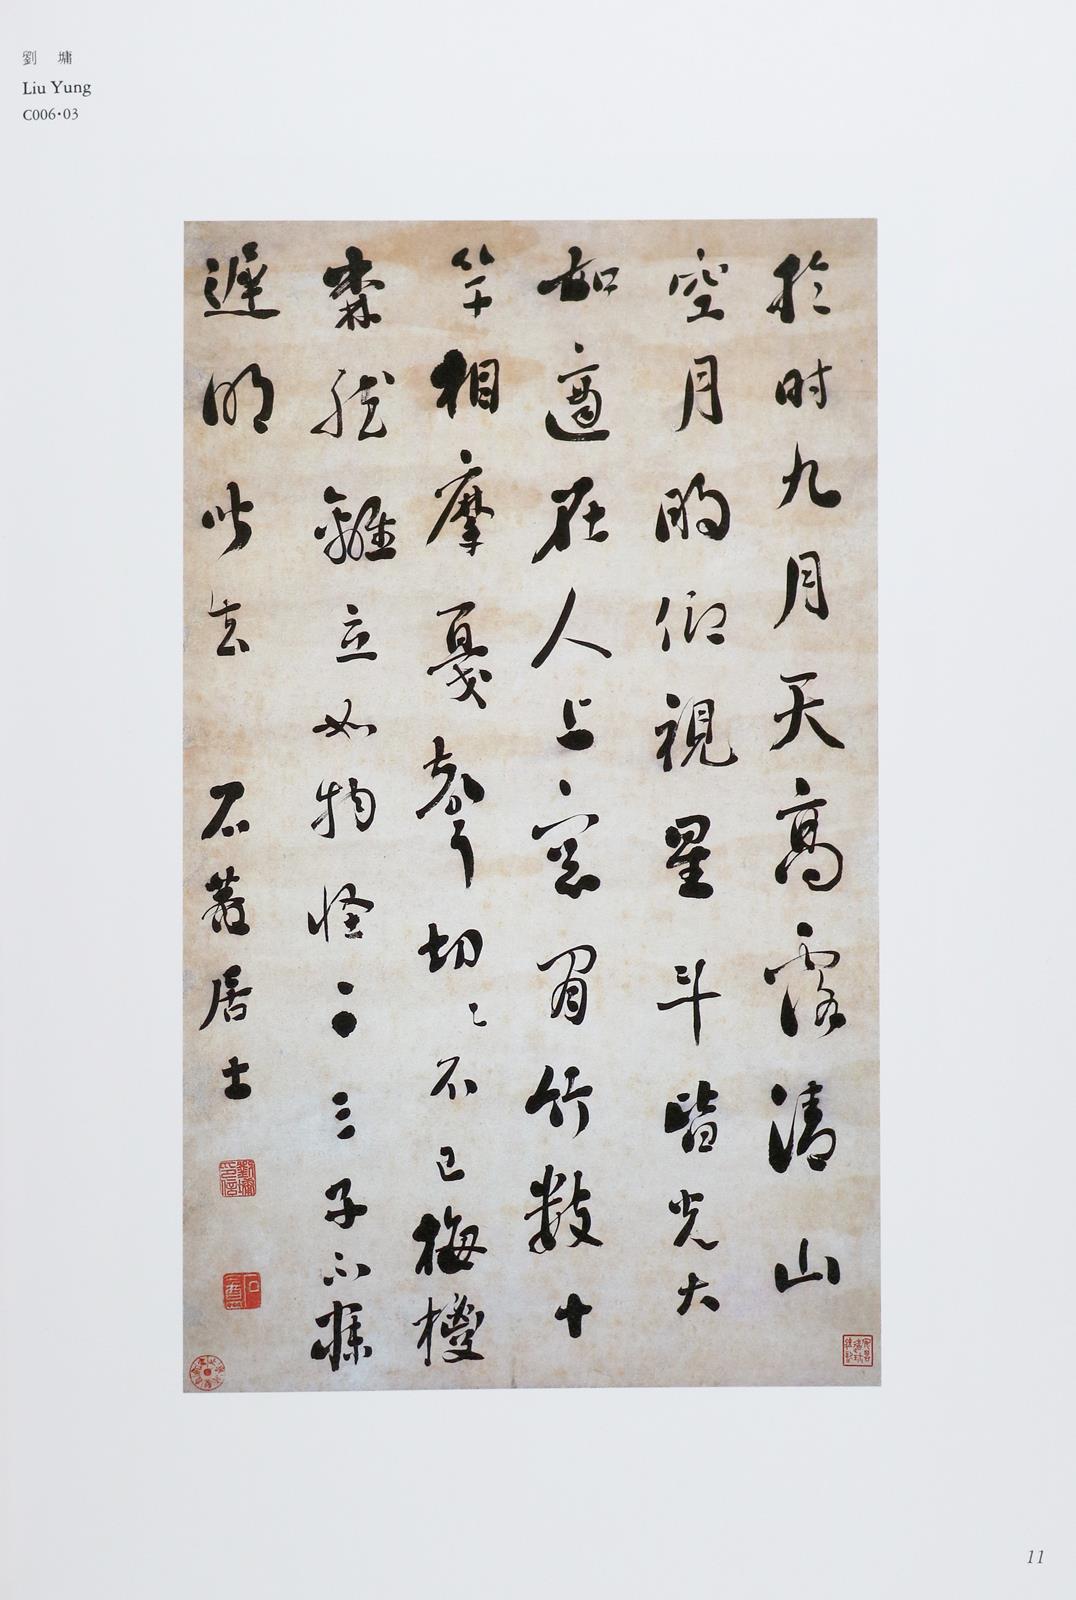 劉 墉
Liu Yung
C006·03
於时九月天高露清山
空月明仰視星斗皆光大
如適在人上窓間竹數十
竿相摩戛聲切〻不已梅椶
森然離立如物怪二三子不寐
遲明皆去 石菴居士
劉墉印信
石菴
11